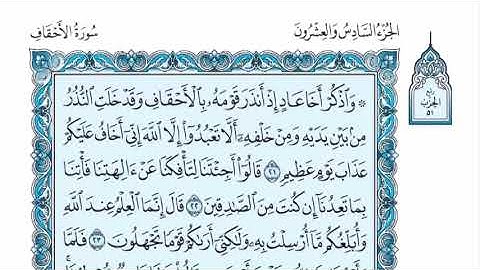 الجُزْءُ السَّادِسُ وَالعِشْرُونَ
سُورَةُ الأَحْقَافِ
ربع
الحزب
٥١
۞ وَٱذْكُرْ أَخَا عَادٍ إِذْ أَنذَرَ قَوْمَهُۥ بِٱلْأَحْقَافِ وَقَدْ خَلَتِ ٱلنُّذُرُ
مِنۢ بَيْنِ يَدَيْهِ وَمِنْ خَلْفِهِۦٓ أَلَّا تَعْبُدُوٓا۟ إِلَّا ٱللَّهَ إِنِّىٓ أَخَافُ عَلَيْكُمْ
عَذَابَ يَوْمٍ عَظِيمٍ ٢١ قَالُوٓا۟ أَجِئْتَنَا لِتَأْفِكَنَا عَنْ ءَالِهَتِنَا فَأْتِنَا
بِمَا تَعِدُنَآ إِن كُنتَ مِنَ ٱلصَّـٰدِقِينَ ٢٢ قَالَ إِنَّمَا ٱلْعِلْمُ عِندَ ٱللَّهِ
وَأُبَلِّغُكُم مَّآ أُرْسِلْتُ بِهِۦ وَلَـٰكِنِّىٓ أَرَىٰكُمْ قَوْمًا تَجْهَلُونَ ٢٣ فَلَمَّا